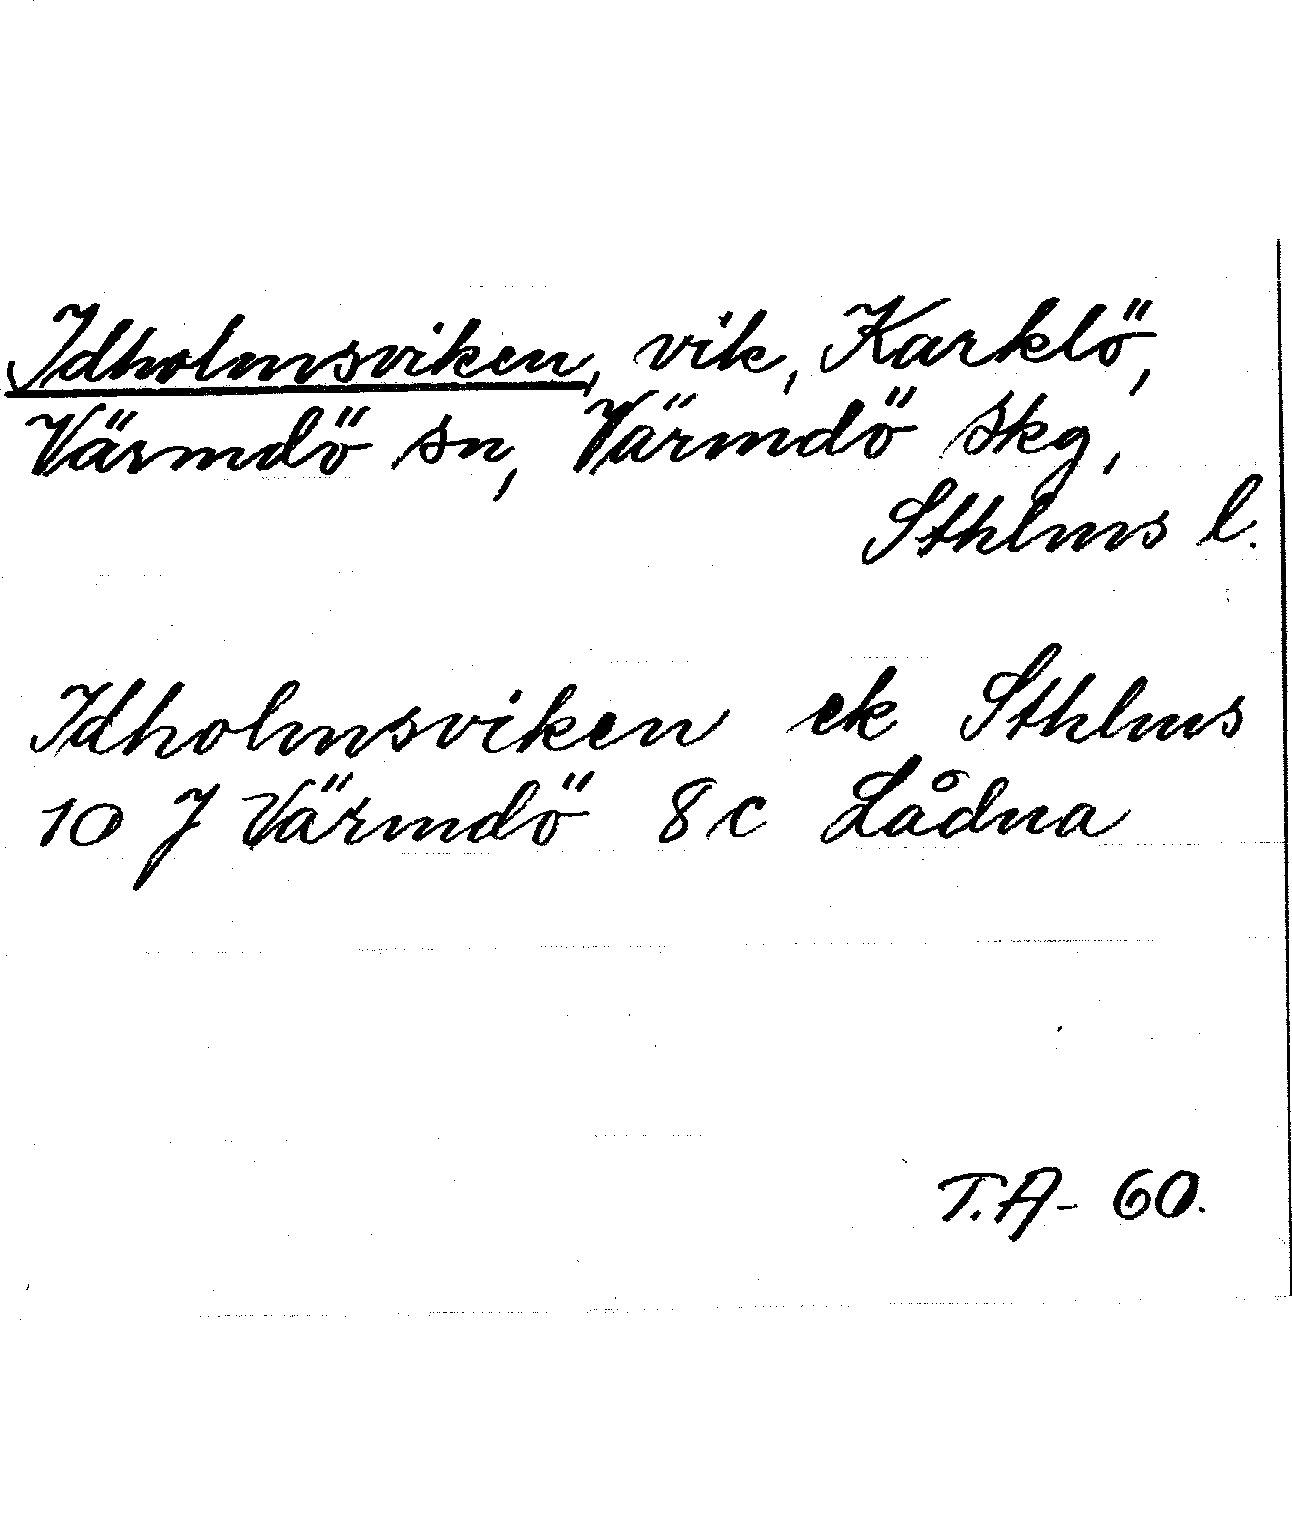 Idholmsviken, vik, Karklö,
Värmdö sn, Värmdö skg,
Sthlms l.
Idholmsviken ek Sthlms
10 J Värmdö 8 c Lådna
T.A- 60.